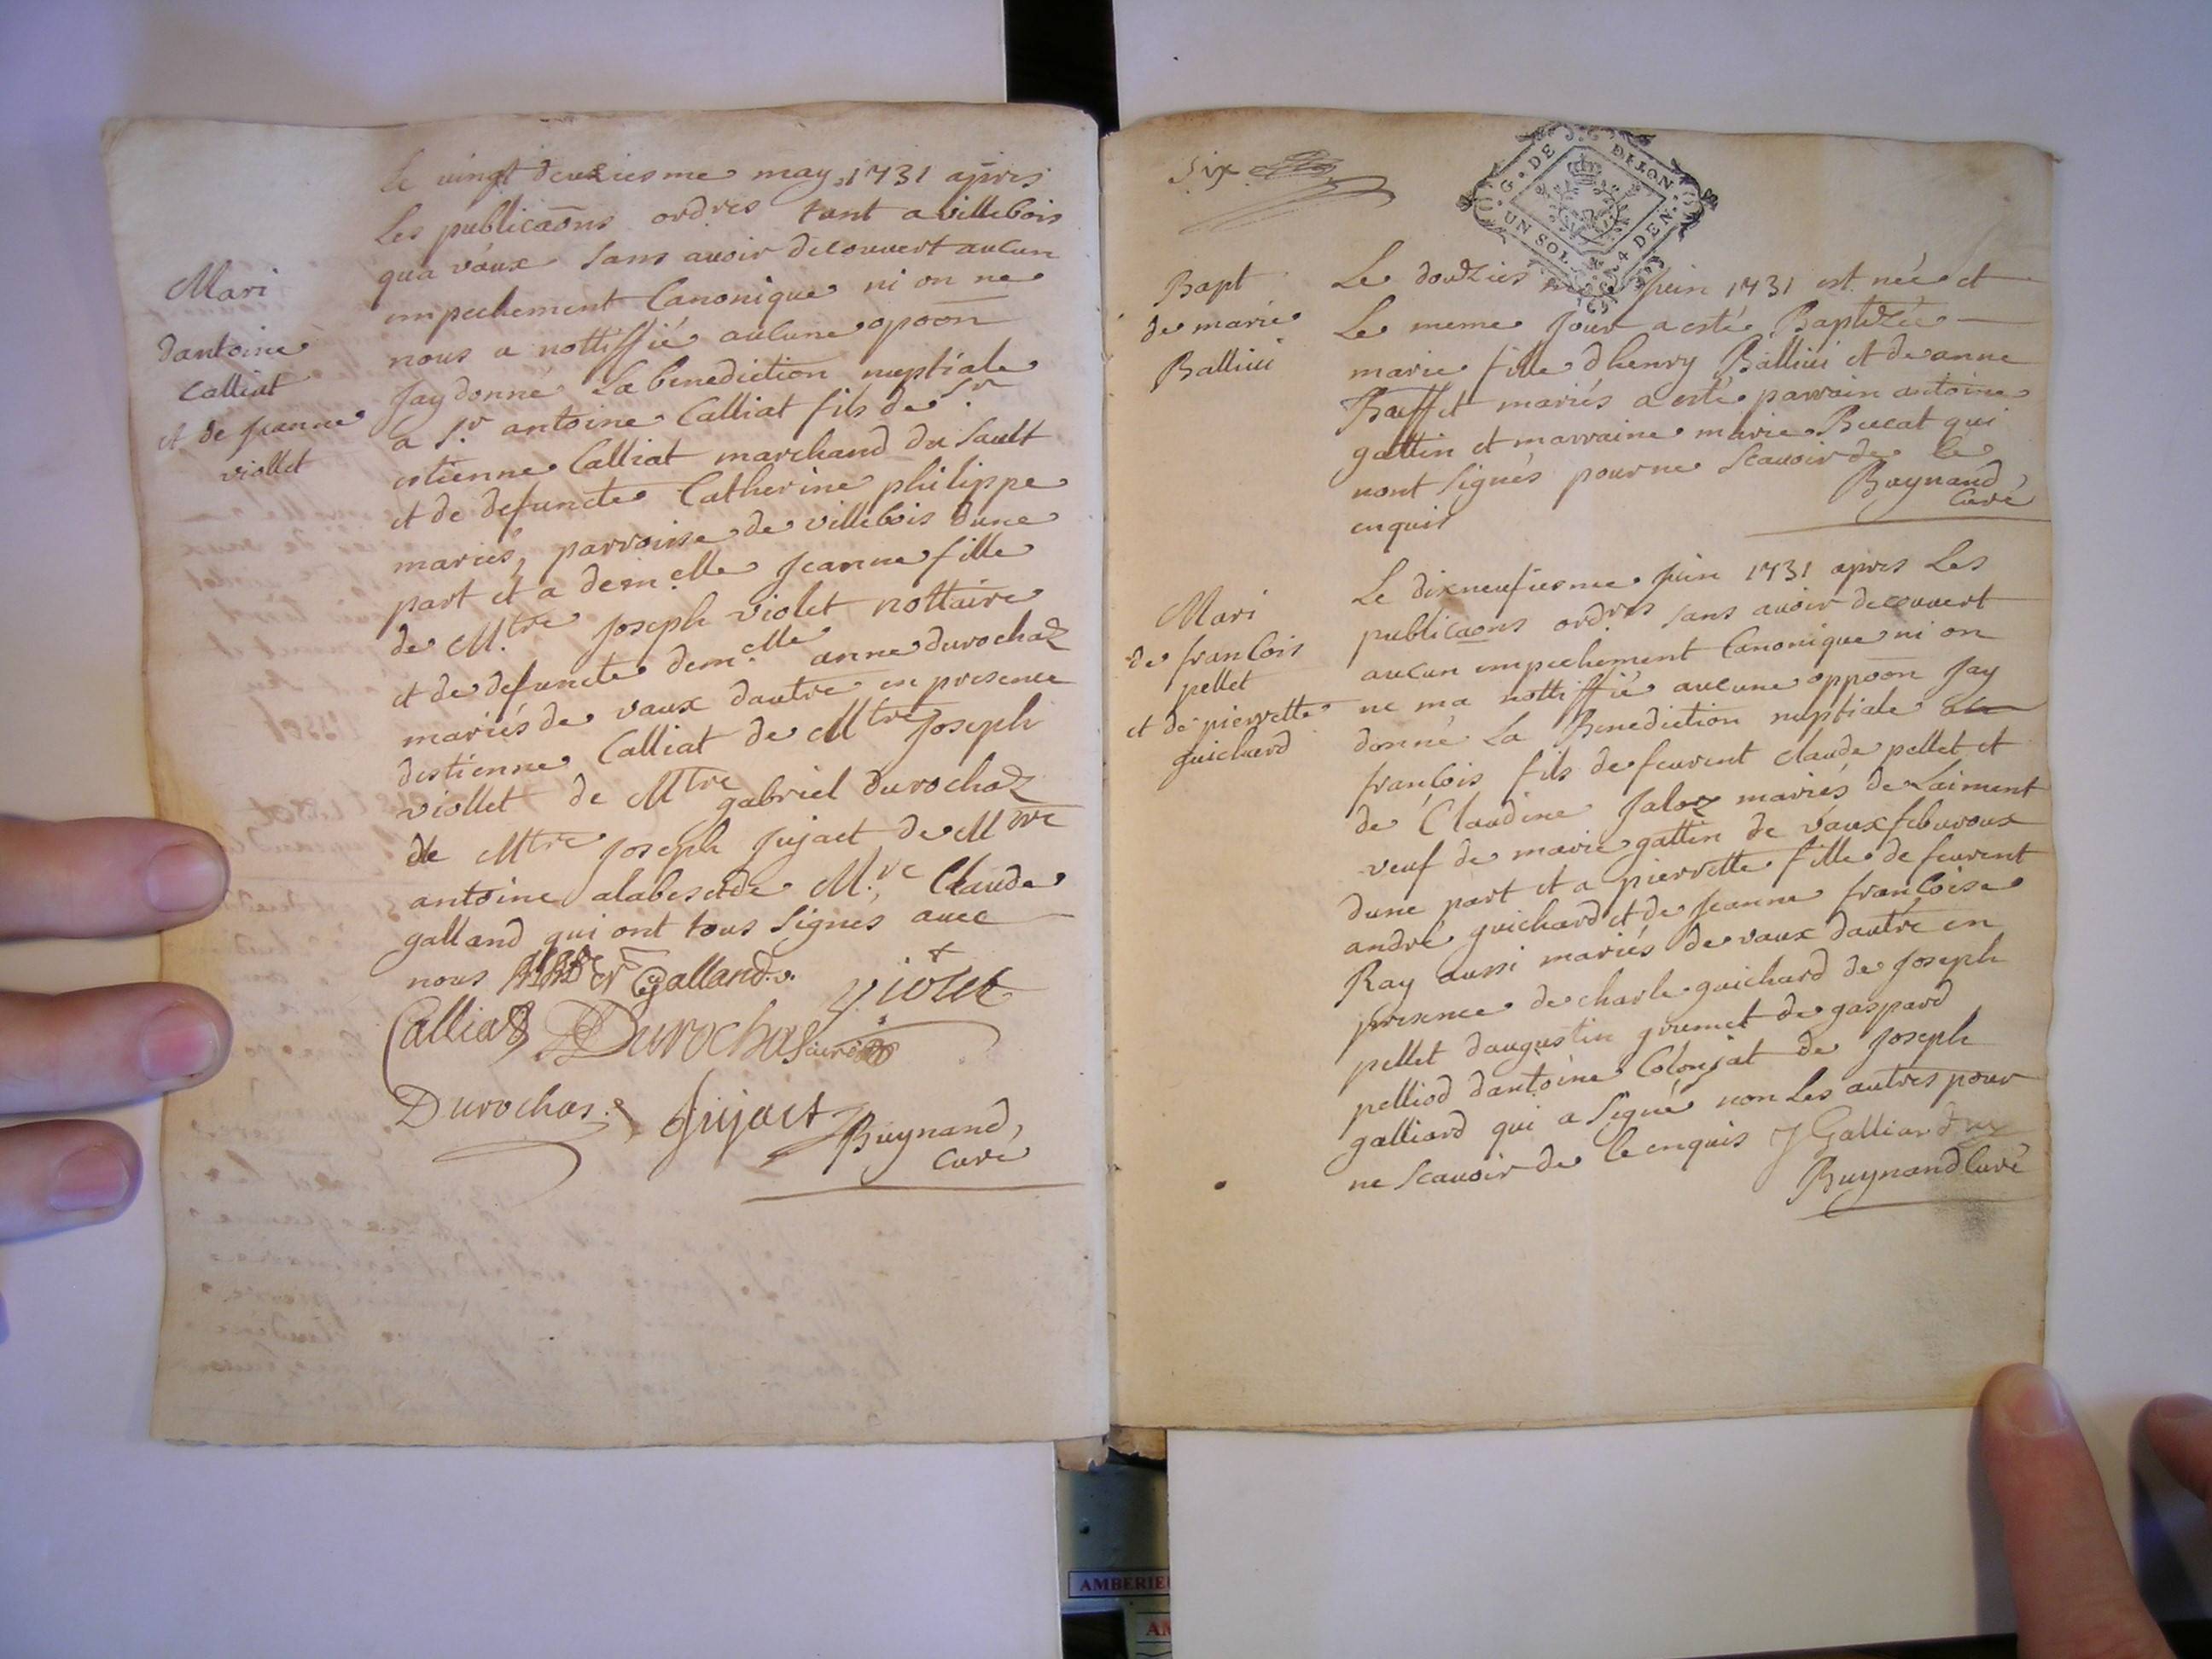 Le vingt deuxiesme may 1731 apres
Les publicaons ordres tant a villebois
qua vaux sans avoir decouvert aucun
empechement Canonique ni on ne
nous a nottiffié aucune opoon
Jay donné La benediction nuptiale
a Sr antoine Calliat fils de Sr
estienne Calliat marchand du Sault
et de defuncte Catherine philippe
mariés, parroisse de villebois dune
part et a demelle Jeanne fille
de Mtre Joseph violet nottaire
et de defuncte demelle anne durochaz
mariés de vaux dautre en presence
destienne Calliat de Mtre Joseph
viollet de Mtre gabriel durochaz
de Mtre Joseph Jujact de Mtre
antoine alabe et de Mre Claude
galland qui ont tous signés avec
nous Galland
Calliat Durochas violet
Durochas Jujact Buynand,
Curé
Mari
dantoine
Calliat
et de Jeanne
viollet
Six
G. DE DIJON
UN SOL 4 DEN.
Bapt
de marie
Ballivi
Le douzies me Juin 1731 est née et
Le meme Jour a esté Baptizée
marie fille dhenry Ballivi et de anne
mariés a esté parrain antoine
gattin et marraine marie Bucat qui
nont signés pour ne scavoir de ce
enquis
Buynand
Curé
Mari
de francois
pellet
et de pierrette
guichard
Le dixneufiesme Juin 1731 apres Les
publicaons ordres sans avoir decouvert
aucun empechement Canonique ni on
ne ma nottiffié aucune oppoon Jay
donné La Benediction nuptiale a
francois fils de feurent claude pellet et
de Claudine Jaloz mariés de Laiment
veuf de marie gattin de vaux febvroux
dune part et a pierrette fille de feurent
andré guichard et de Jeanne francoise
Ray aussi mariés de vaux dautre en
presence de charle guichard de Joseph
pellet daugustin grumet de gaspard
pelliod dantoine Colonjat de Joseph
galliard qui a signé non Les autres pour
ne scavoir de ce enquis J Galliard
Buynand Curé
AMBERIE